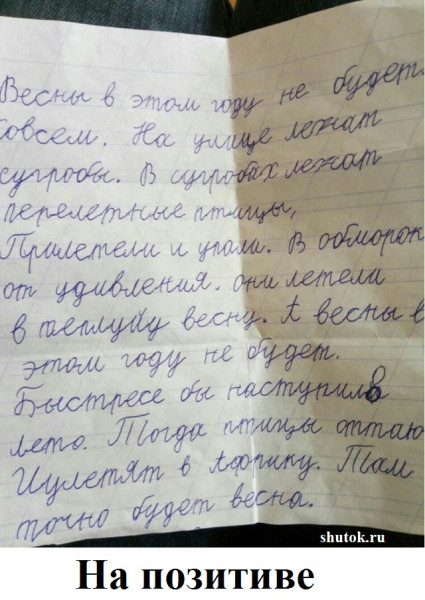 Весны в этом году не будет.
совсем. На улице лежат
сугробы. В сугробах лежат
перелетные птицы,
Прилетели и упали. В обморок
от удивления. они летели
в теплуйу весну. А весны в
этом году не будет.
Быстресе бы наступило
лето. Тогда птицы оттаю
И улетят в Африку. Там
точно будет весна.
shutok.ru
На позитиве